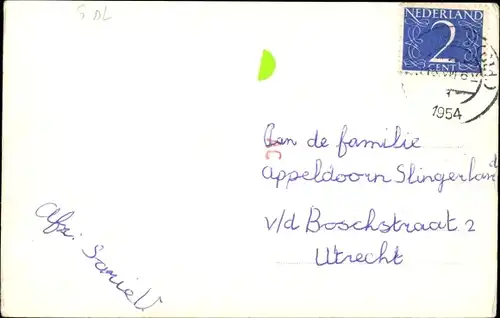 NEDERLAND
2
CENT
1954
Aan de familie
Appeldoorn Slingerland
v/d Boschstraat 2
Utrecht
Afz.